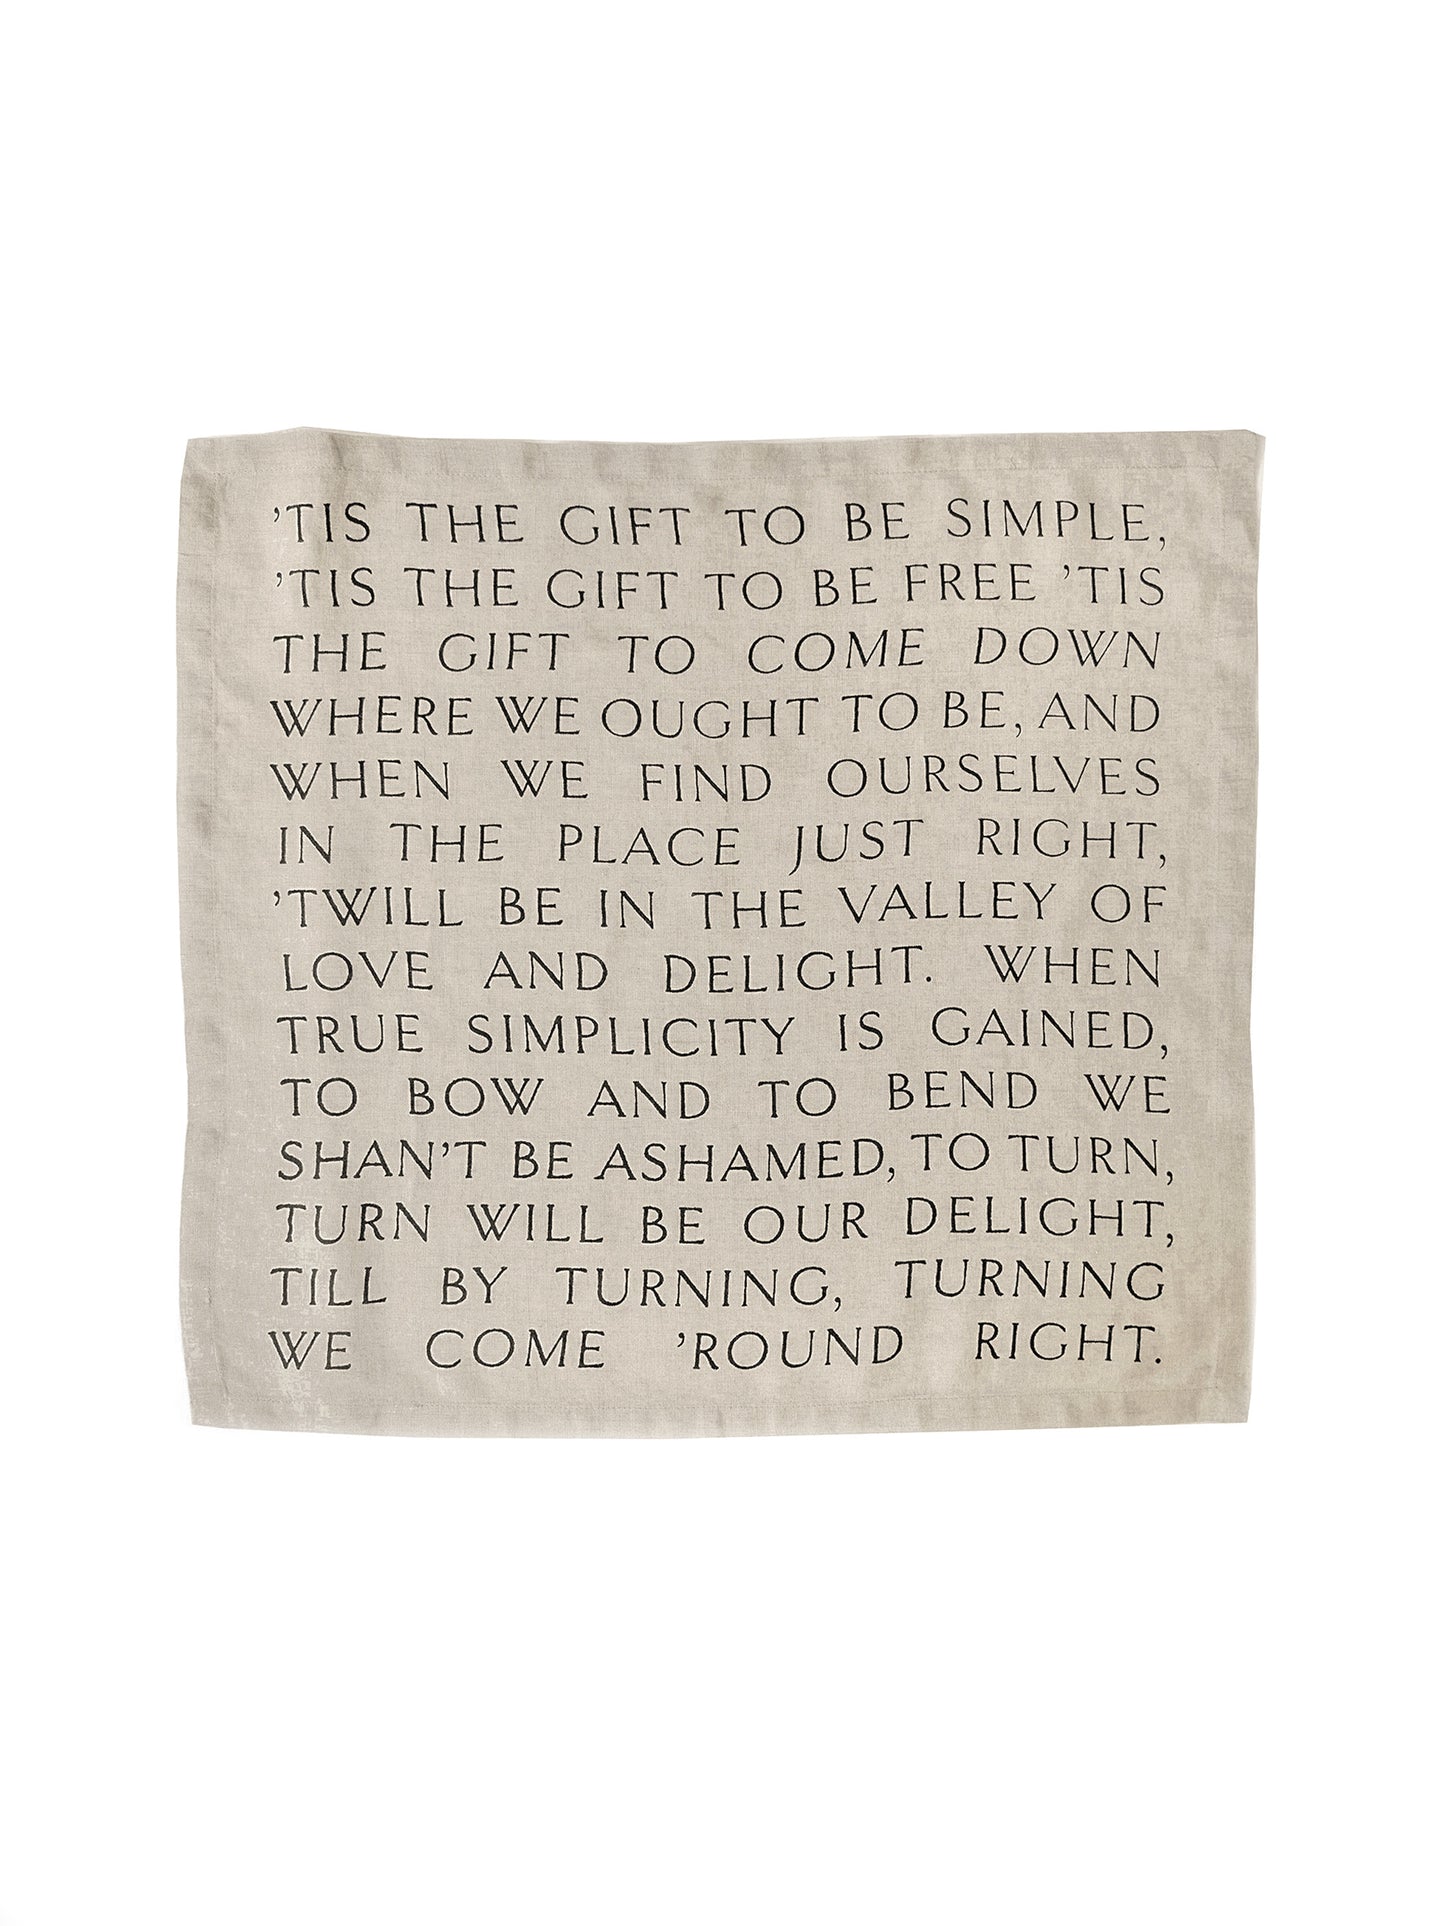 ’TIS THE GIFT TO BE SIMPLE,
’TIS THE GIFT TO BE FREE ’TIS
THE GIFT TO COME DOWN
WHERE WE OUGHT TO BE, AND
WHEN WE FIND OURSELVES
IN THE PLACE JUST RIGHT,
’TWILL BE IN THE VALLEY OF
LOVE AND DELIGHT. WHEN
TRUE SIMPLICITY IS GAINED,
TO BOW AND TO BEND WE
SHAN’T BE ASHAMED, TO TURN,
TURN WILL BE OUR DELIGHT,
TILL BY TURNING, TURNING
WE COME ’ROUND RIGHT.